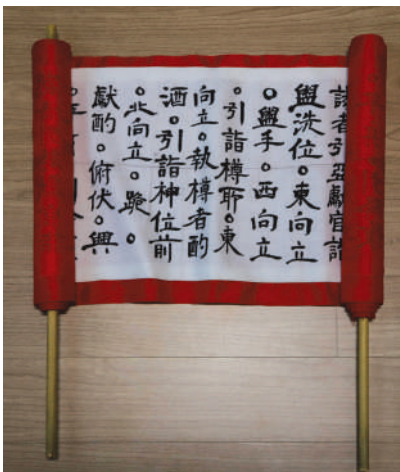 謁者引亞獻官詣
盥洗位○東向立
○盥手○西向立
○引詣樽所○東
向立○執樽者酌
酒○引詣神位前
○北向立○跪○
獻酌○俯伏○興